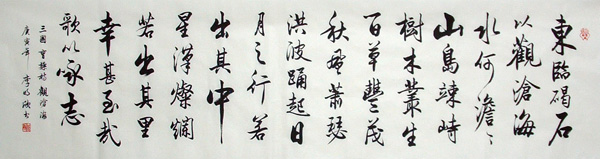 東臨碣石
以觀滄海
水何澹〻
山島竦峙
樹木叢生
百草豐茂
秋風蕭瑟
洪波踊起日
月之行若
出其中
星漢燦爛
若出其里
幸甚至哉
歌以詠志
三國曹操詩觀滄海
庚寅年 李 欣書